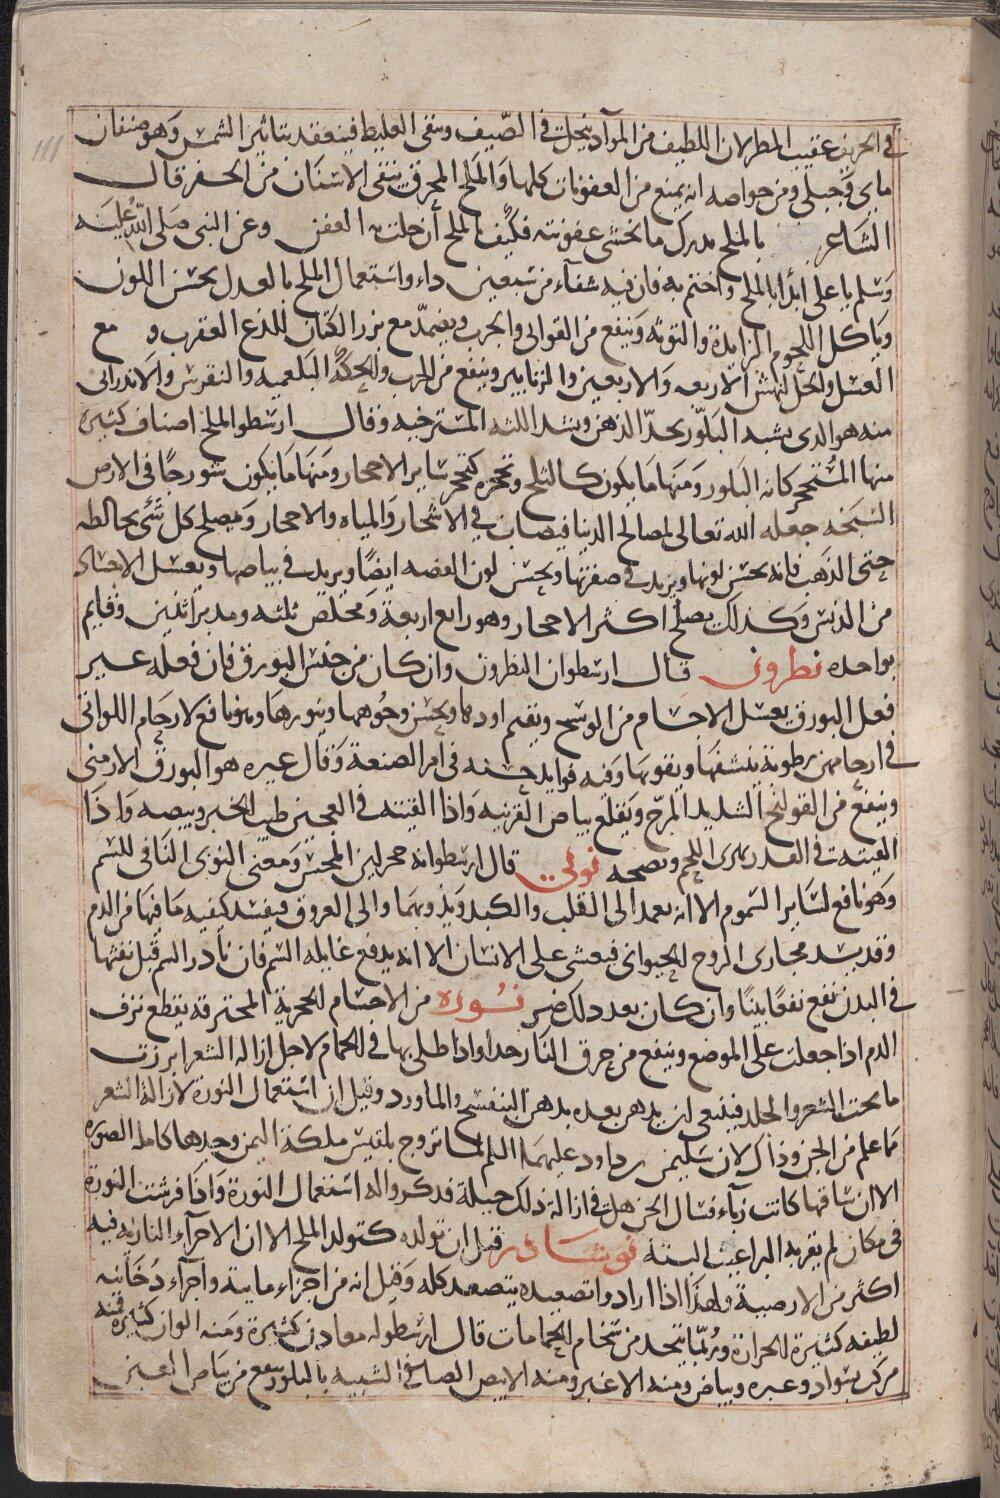 في الخريف عقيب المطر لان اللطيف من المواد ينحلّ في الصيف ويبقى الغليظ فينعقد بتاثير الشمس وهو صنفان
مايي وجبلي ومن خواصه انه يمنع من العفونات كلها والملح المحرق ينقي الاسنان من الحفر قال
الشاعر بالملح يدرك ما نخشى عفونته فكيف بالملح أن حلت به العفن وعن النبي صلى الله عليه
وسلم يا علي ابدأ بالملح واختم به فان فيه شفاء من سبعين داء واستعمال الملح بالعدل يحسن اللون
وياكل اللحوم الزايدة والتوته وينفع من القوابي والجرب ويضمد مع بزر الكتان للذع العقرب و مع
العسل والخل لنهش الاربعه والاربعين والزنابير وينفع من الجرب والحكة البلغميه والنقرس والاندراني
منه هو الذي يشبه البلّور يحدّ الذهن ويشد اللثه المسترخيه وقال ارسطو الملح اصناف كثيره
منها المستحجر كانه البلور ومنها ما يكون كالثلج وتحجره كتحجر ساير الاحجار ومنها ما يكون سورجًا في الارض
السبخه جعله الله تعالى لمصالح الدنيا فيصاب في الاشجار والمياه والاحجار ويصلح كل شيء يخالطه
حتى الذهب فانه يحسن لونها ويزيد في صفرتها ويحسن لون الفضه ايضًا ويزيد في بياضها ويغسل الاحشاء
من الدنس وكذلك يصلح اكثر الاحجار وهو رابع اربعة ومخلص ثلثه ومدبر اثنين وقايم
بواحده نطرون قال ارسطو ان النطرون وان كان من جنس البورق فان فعله غير
فعل البورق يغسل الاجسام من الوسخ ويقيم اودها ويحسن وجوهها وينورها وهو نافع لارحام اللواتي
في ارحامهن رطوبة ينشفها ويقويها وفيه فوايد حسنه في امر الصنعة وقال غيره هو البورق الارمني
وينفع من القولنج الشديد المبرّح ويقلع بياض القرنيه واذا القيته في العجين طيب الخبز وبيضه واذا
القيته في القدر يهرى اللحم وينضجه نولي قال ارسطو انه حجر لين المجس ومعنى النوى النافي للسم
وهو نافع لساير السموم الا انه يعمد الى القلب والكبد ويذوبهما والى العروق فيفسد كيفيه ما فيها من الدم
وقد يسد مجاري الروح الحيواني فيغشى على الانسان الا انه يدفع غايله السم فان بادر السم قبل نفثها
في البدن نفع نفعًا بينًا وان كان بعد ذلك ضر نوره من الاجسام الحجرية المحترقه يقطع نزف
الدم اذا جعلت على الموضع وينفع من حرق النار جدا واذا طلي بها في الحمام لاجل ازاله الشعر ابرزت
ما تحت الشعر والجلد فينبغي ان يدهن بعده بدهن البنفسج والماورد وقيل ان استعمال النورة لازالة الشعر
مما علم من الجن وذاك لان سليمن بن داود عليهما السلم لما تزوج بلقيس ملكة اليمن وجدها كامله الصوره
الا ان ساقها كانت زباء فسال الجن هل في ازالة ذلك حيلة فذكروا له استعمال النورة واذا فرشت النورة
في مكان لم يقربه البراغيث البتة نوشادر قيل ان تولده كتولد الملح الا ان الاجزاء الناريه فيه
اكثر من الارضية ولهذا اذا ارادوا تصعيده يتصعد كله وقيل انه من اجزاء مايية واجزاء دخانيه
لطيفه كثيرة الحرارة وربما يتخذ من سخام الحمامات قال ارسطو له معادن كثيرة ومنه الوان كثيرة فمنه
مركب بسواد وغبره وبياض ومنه الاغبر ومنه الابيض الصافي الشبيه بالبلور ينفع من بياض العين